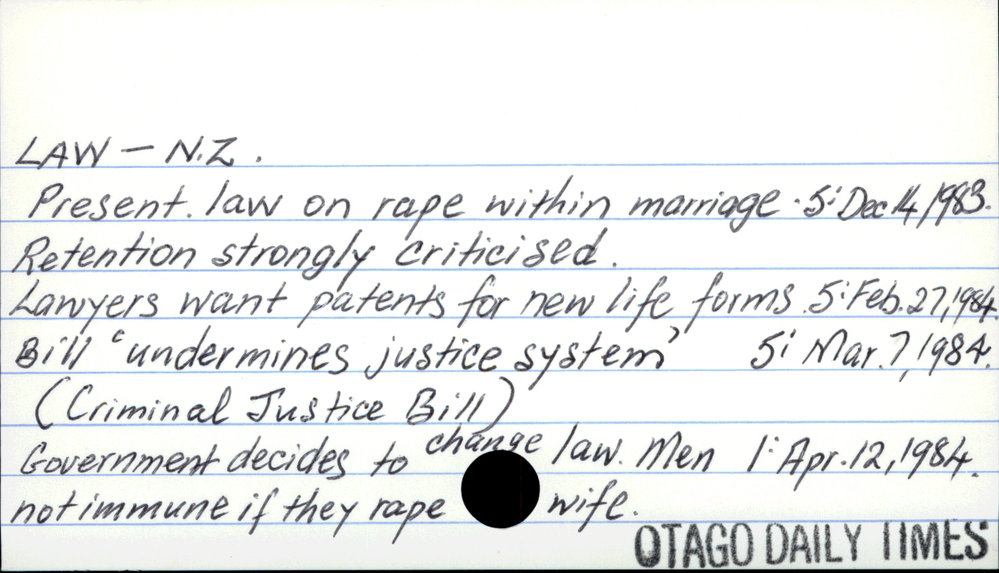 LAW - N.Z.
Present law on rape within marriage. 5: Dec 14, 1983.
Retention strongly criticised.
Lawyers want patents for new life forms. 5: Feb. 27, 1984.
Bill "undermines justice system" 5: Mar. 7, 1984.
(Criminal Justice Bill)
Government decides to change law. Men 1: Apr. 12, 1984.
not immune if they rape wife.
OTAGO DAILY TIMES